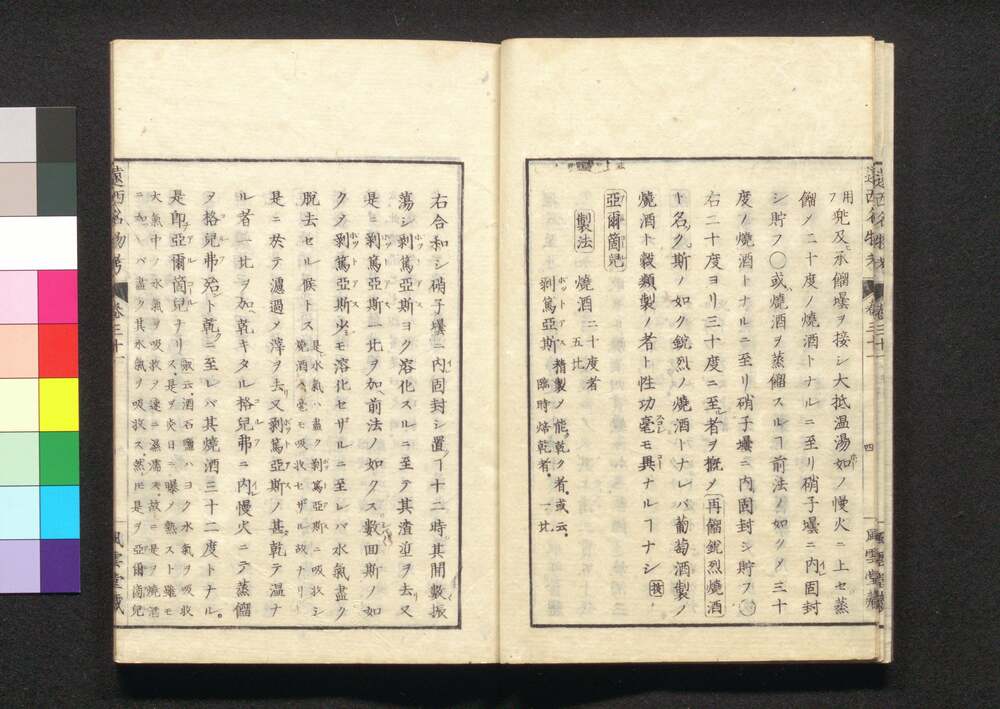 遠西名物考
巻三十一
四
風雲堂藏
用フ兜及承餾壜ヲ接シ大抵温湯如ノ慢火ニ上セ蒸
餾ノ二十度ノ焼酒トナルニ至リ硝子壜ニ内固封
シ貯フ○或焼酒ヲ蒸餾スルヿ前法ノ如クメ三十
度ノ焼酒トナルニ至リ硝子壜ニ内固封シ貯フ○
右二十度ヨリ三十度ニ至者ヲ概メ再餾鋭烈焼酒
ト名ク斯ノ如ク鋭烈ノ焼酒トナレバ葡萄酒製ノ
焼酒ト穀類製ノ者ト性功毫モ異ナルヿナシ按
亞爾箇児
製法 焼酒 二十度者 五比
剥篤亞斯 精製ノ能乾ク者或云 臨時焙乾者 一比
右合和シ硝子壜ニ内固封シ置ヿ十二時其間數振
蕩シ剥篤亞斯ヨク溶化スルニ至テ其渣滓ヲ去又
是ニ剥篤亞斯一比ヲ加前法ノ如クス數回斯ノ如
クメ剥篤亞斯少モ溶化セザルニ至レバ水氣盡ク
脱去セル候トス 是水氣ハ盡ク剥篤亞斯ニ吸收シ 焼酒ハ毫モ吸收セザル故ナリ
是ニ於テ濾過メ滓ヲ去又剥篤亞斯ノ甚乾テ温ナ
ル者一比ヲ加乾キタル格児弗ニ内慢火ニテ蒸餾
ヲ格児弗殆ト乾ニ至レバ其焼酒三十二度トナル
是即亞爾箇児ナリ 或云酒石鹽ハヨク水氣ヲ吸收ス是ヲ炎日ニ曝ノ熱スト雖モ
大氣中ノ水氣ヲ吸收ヲ速ニ濕濡ス故ニ是ヲ焼酒
ニ加レバ盡ク其水氣ヲ吸收ス然ﾄﾓ是ヲ亞爾箇児
遠西名物考
巻三十一
風雲堂藏